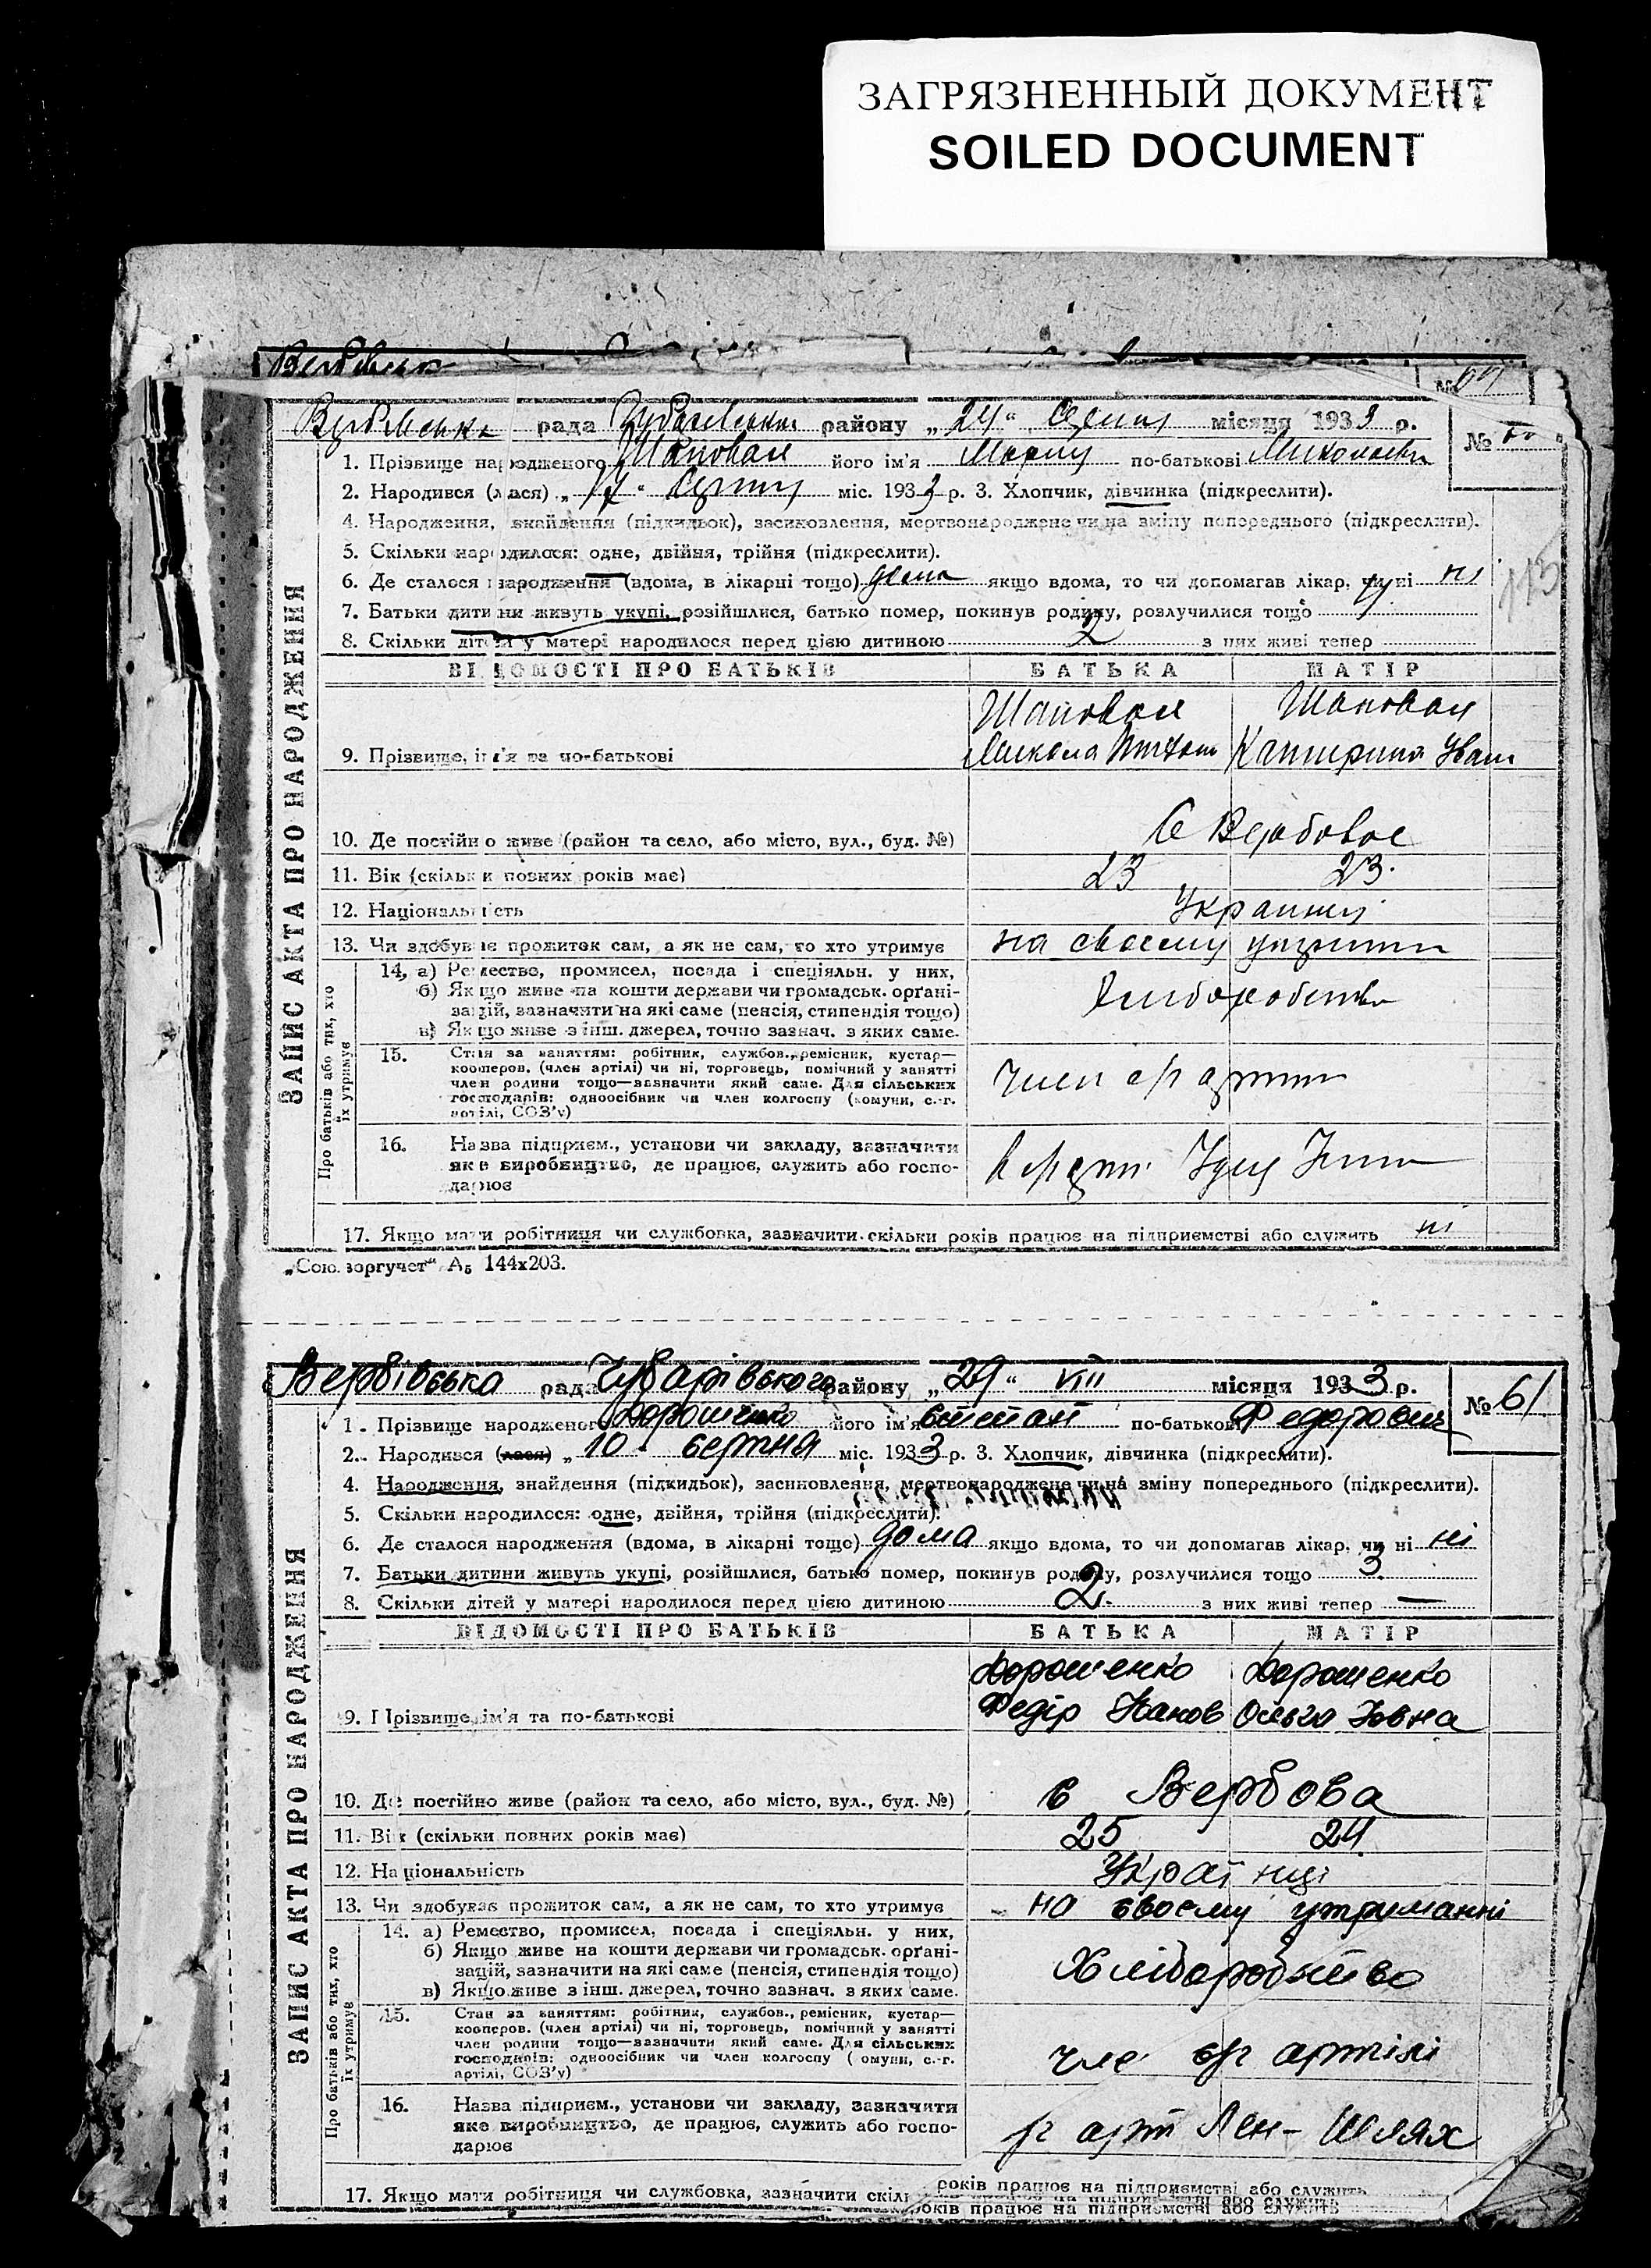 ЗАГРЯЗНЕННЫЙ ДОКУМЕНТ
SOILED DOCUMENT
Вербівськ
рада району „24“ місяця 1933 р. №
1. Прізвище народженого Шаповал його ім'я по-батькові
2. Народився (лася) „ “ міс. 1933 р. 3. Хлопчик, дівчинка (підкреслити).
4. Народження, знайдення (підкидьок), засиновлення, мертвонароджене чи на зміну попереднього (підкреслити).
5. Скільки народилося: одне, двійня, трійня (підкреслити).
6. Де сталося народження (вдома, в лікарні тощо) дома якщо вдома, то чи допомагав лікар, чи ні ні
7. Батьки дитини живуть укупі, розійшлися, батько помер, покинув родину, розлучилися тощо
8. Скільки дітей у матері народилося перед цією дитиною 2 з них живі тепер
115
ЗАПИС АКТА ПРО НАРОДЖЕННЯ
ВІДОМОСТІ ПРО БАТЬКІВ БАТЬКА МАТІР
Шаповал Шаповал
9. Прізвище, ім'я та по-батькові Микола Катерина Іван
10. Де постійно живе (район та село, або місто, вул., буд. №) с Вербовое
11. Вік (скільки повних років має) 23 23.
12. Національність
13. Чи здобуває прожиток сам, а як не сам, то хто утримує на своему
Про батьків або тих, хто їх утримує
14. а) Ремество, промисел, посада і спеціяльн. у них,
б) Якщо живе на кошти держави чи громадськ. орґані-
зацій, зазначити на які саме (пенсія, стипендія тощо)
в) Якщо живе з інш. джерел, точно зазнач. з яких саме.
15. Стан за заняттям: робітник, службов., ремісник, кустар—
кооперов. (член артілі) чи ні, торговець, помічний у занятті
член родини тощо—зазначити який саме. Для сільських
господарів: одноосібник чи член колгоспу (комуни, с.-г.
артілі, СОЗ'у)
член
16. Назва підприєм., установи чи закладу, зазначити
яке виробництво, де працює, служить або госпо-
дарює
17. Якщо мати робітниця чи службовка, зазначити скільки років працює на підприємстві або служить ні
„Союзоргучет“ А5 144х203.
Вербівська рада Чубарівського району „29“ VIII місяця 1933 р. № 61
1. Прізвище народженого Дорошенко його ім'я Степан по-батькові Федорович
2. Народився (лася) „10“ серпня міс. 1933 р. 3. Хлопчик, дівчинка (підкреслити).
4. Народження, знайдення (підкидьок), засиновлення, мертвонароджене чи на зміну попереднього (підкреслити).
5. Скільки народилося: одне, двійня, трійня (підкреслити).
6. Де сталося народження (вдома, в лікарні тощо) дома якщо вдома, то чи допомагав лікар, чи ні ні
7. Батьки дитини живуть укупі, розійшлися, батько помер, покинув родину, розлучилися тощо 3
8. Скільки дітей у матері народилося перед цією дитиною 2. з них живі тепер —
ЗАПИС АКТА ПРО НАРОДЖЕННЯ
ВІДОМОСТІ ПРО БАТЬКІВ БАТЬКА МАТІР
Дорошенко Дорошенко
9. Прізвище, ім'я та по-батькові Федір Ольга
10. Де постійно живе (район та село, або місто, вул., буд. №) с Вербова
11. Вік (скільки повних років має) 25 24
12. Національність Українці
13. Чи здобуває прожиток сам, а як не сам, то хто утримує на своєму утриманні
Про батьків або тих, хто їх утримує
14. а) Ремество, промисел, посада і спеціяльн. у них,
б) Якщо живе на кошти держави чи громадськ. орґані-
зацій, зазначити на які саме (пенсія, стипендія тощо)
в) Якщо живе з інш. джерел, точно зазнач. з яких саме.
Хліборобство
15. Стан за заняттям: робітник, службов., ремісник, кустар—
кооперов. (член артілі) чи ні, торговець, помічний у занятті
член родини тощо—зазначити який саме. Для сільських
господарів: одноосібник чи член колгоспу (комуни, с.-г.
артілі, СОЗ'у)
чле сг артілі
16. Назва підприєм., установи чи закладу, зазначити
яке виробництво, де працює, служить або госпо-
дарює
арт Лен-Шлях
17. Якщо мати робітниця чи службовка, зазначити скіль років працює на підприємстві або служить
років працює на підприємстві або служить